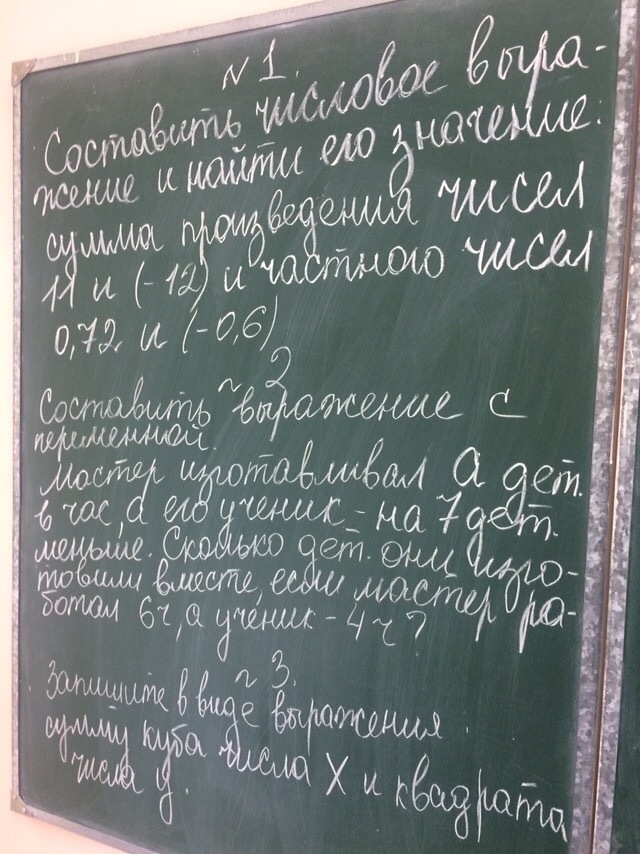 № 1.
Составить числовое выра-
жение и найти его значение:
сумма произведения чисел
11 и (-12) и частного чисел
0,72 и (-0,6)
~ 2
Составить выражение с
переменной.
Мастер изготавливал a дет.
в час, а его ученик - на 7 дет.
меньше. Сколько дет. они изго-
товили вместе, если мастер ра-
ботал 6ч, а ученик - 4ч?
~ 3.
Запишите в виде выражения
сумму куба числа X и квадрата
числа y.